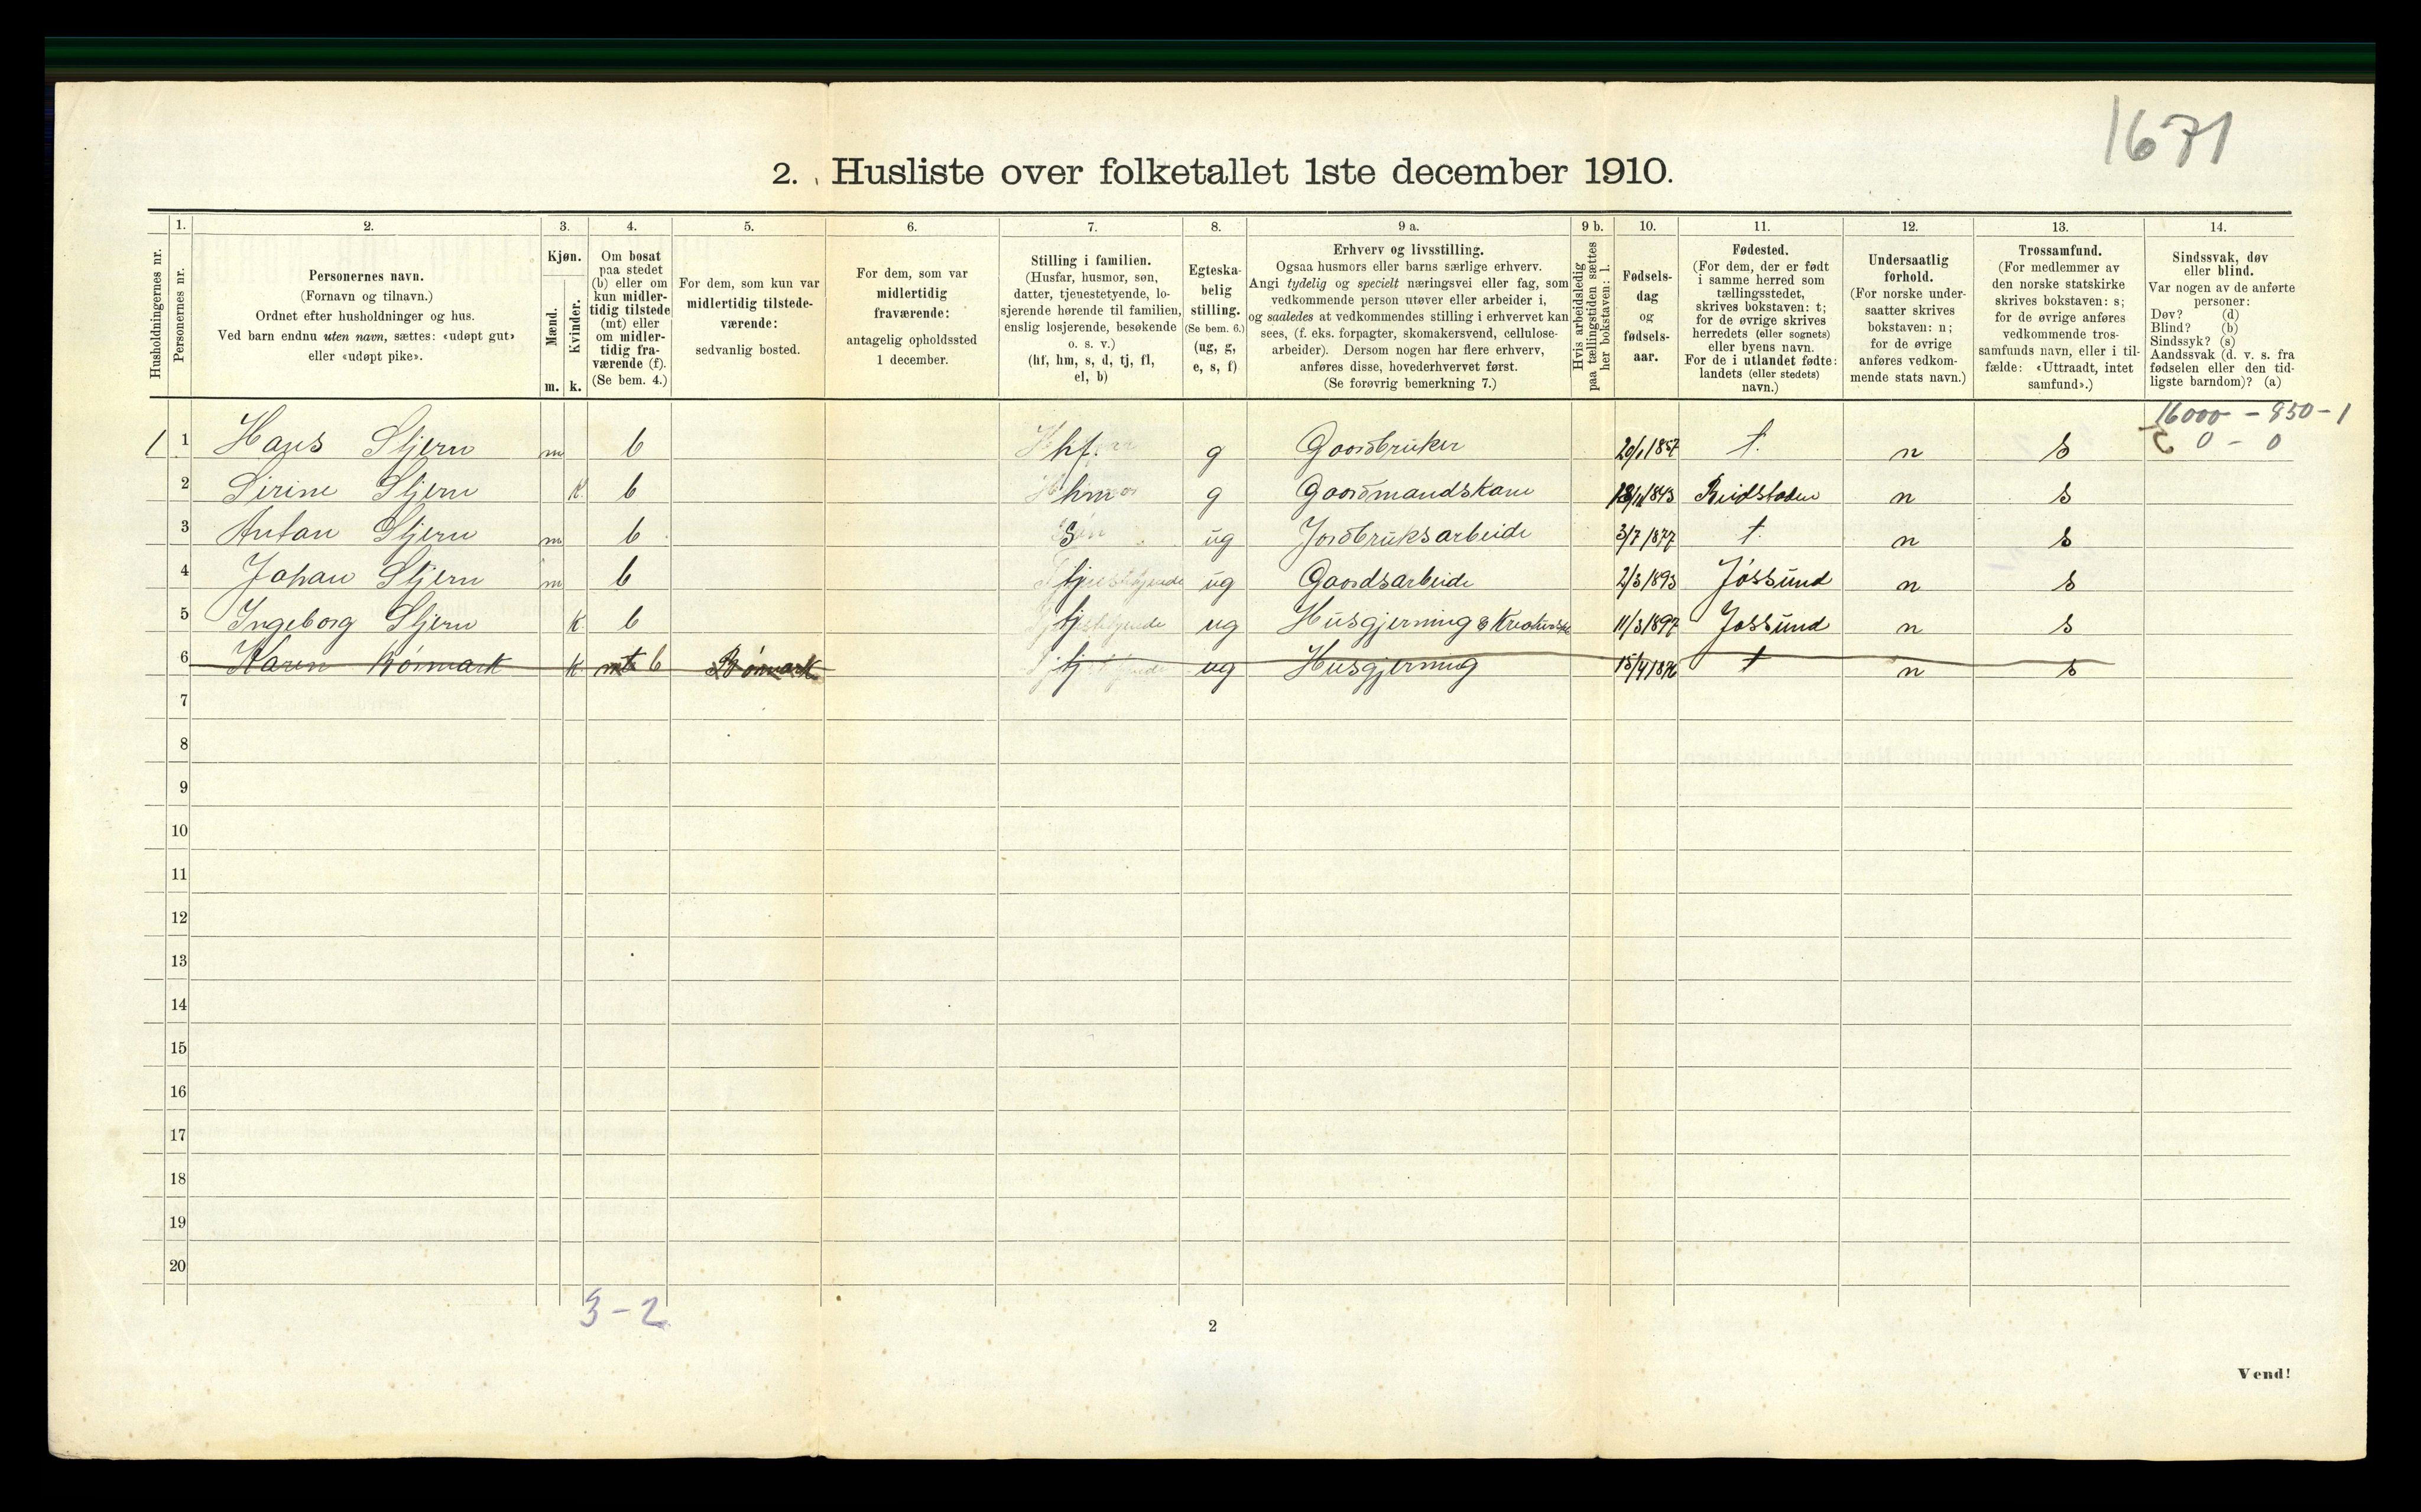 1671
2. Husliste over folketallet 1ste december 1910.
Husholdningernes nr.
1. Personernes nr.
2. Personernes navn. (Fornavn og tilnavn.) Ordnet efter husholdninger og hus. Ved barn endnu uten navn, sættes: «udøpt gut» eller «udøpt pike».
3. Kjøn. Mænd. m. Kvinder. k.
4. Om bosat paa stedet (b) eller om kun midlertidig tilstede (mt) eller om midlertidig fraværende (f). (Se bem. 4.)
5. For dem, som kun var midlertidig tilstedeværende: sedvanlig bosted.
6. For dem, som var midlertidig fraværende: antagelig opholdssted 1 december.
7. Stilling i familien. (Husfar, husmor, søn, datter, tjenestetyende, losjerende hørende til familien, enslig losjerende, besøkende o. s. v.) (hf, hm, s, d, tj, fl, el, b)
8. Egteskabelig stilling. (Se bem. 6.) (ug, g, e, s, f)
9 a. Erhverv og livsstilling. Ogsaa husmors eller barns særlige erhverv. Angi tydelig og specielt næringsvei eller fag, som vedkommende person utøver eller arbeider i, og saaledes at vedkommendes stilling i erhvervet kan sees, (f. eks. forpagter, skomakersvend, cellulosearbeider). Dersom nogen har flere erhverv, anføres disse, hovederhvervet først. (Se forøvrig bemerkning 7.)
9 b. Hvis arbeidsledig paa tællingstiden sættes her bokstaven: l.
10. Fødselsdag og fødselsaar.
11. Fødested. (For dem, der er født i samme herred som tællingsstedet, skrives bokstaven: t; for de øvrige skrives herredets (eller sognets) eller byens navn. For de i utlandet fødte: landets (eller stedets) navn.)
12. Undersaatlig forhold. (For norske undersaatter skrives bokstaven: n; for de øvrige anføres vedkommende stats navn.)
13. Trossamfund. (For medlemmer av den norske statskirke skrives bokstaven: s; for de øvrige anføres vedkommende trossamfunds navn, eller i tilfælde: «Uttraadt, intet samfund».)
14. Sindssvak, døv eller blind. Var nogen av de anførte personer: Døv? (d) Blind? (b) Sindssyk? (s) Aandssvak (d. v. s. fra fødselen eller den tidligste barndom)? (a)
16000 - 850 - 1
0 - 0
1 1 Hans Stjern m b hf. g Gaardbruker 20/1 1857 t. n s
2 Sirine Stjern k b hm g Gaardmandskone 1843 n s
3 Antan Stjern m b s ug Jordbruksarbeide 3/7 1877 t. n s
4 Johan Stjern m b tj ug Gaardsarbeide 2/3 1893 Jøssund n s
5 Ingeborg Stjern k b tj ug Husgjerning & 11/3 1897 Jøssund n s
6 Karen Børmark k mt b Børmark tj ug Husgjerning t n s
7
8
9
10
11
12
13
14
15
16
17
18
19
20
3-2
2
Vend!